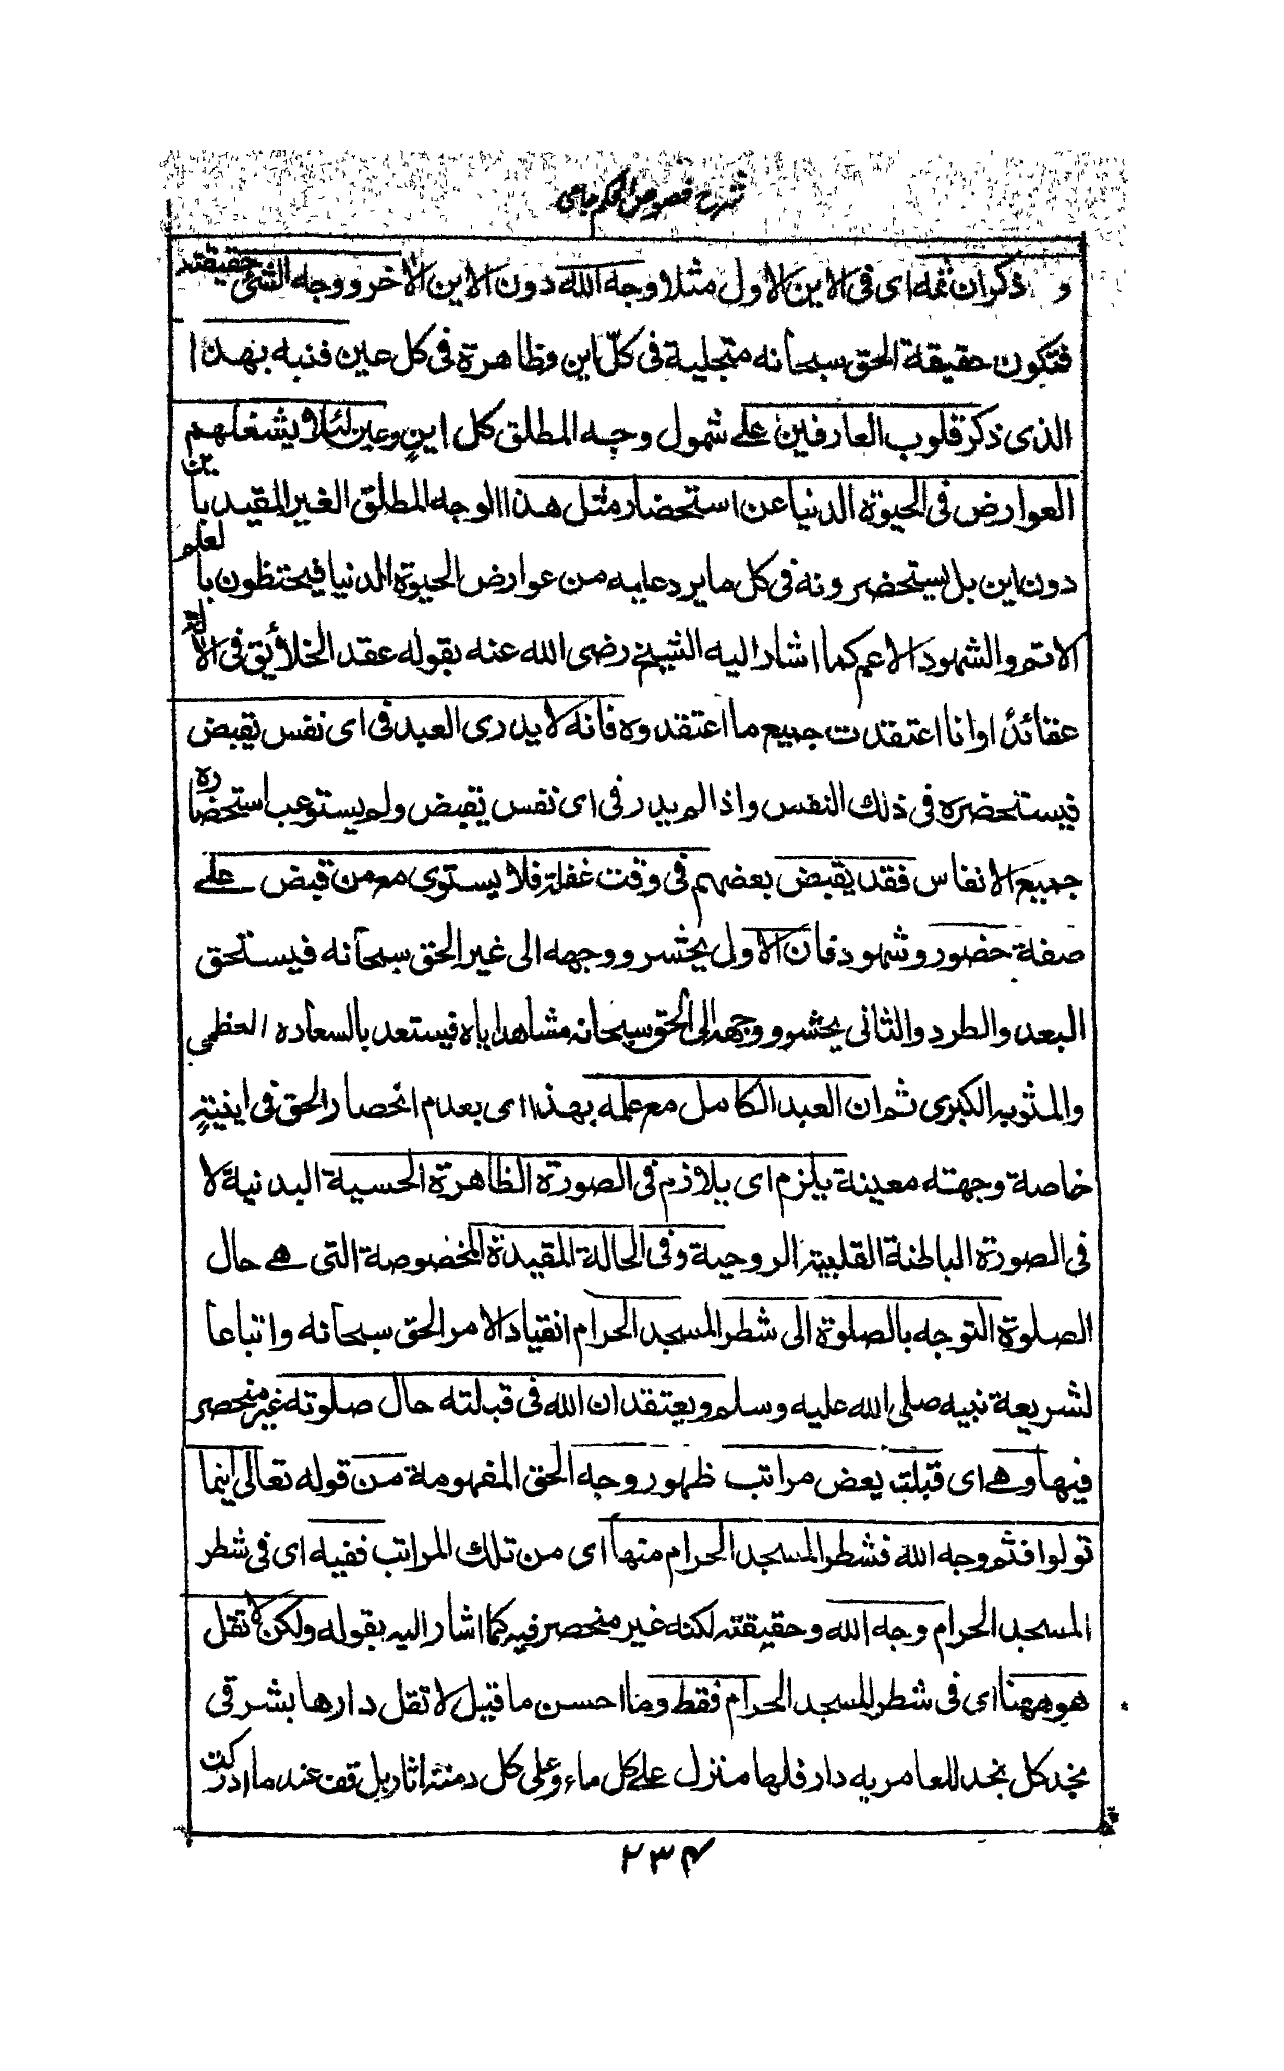 شرح فصوص الحكم جامى
و ذكر ان ثمه اى فى الاين الاول مثلا وجه الله دون الاين الآخر ووجه الشئ حقيقته
فتكون حقيقة الحق سبحانه متجلية فى كلّ اين وظاهرة فى كل عين فنبه بهذا
الذى ذكر قلوب العارفين على شمول وجه المطلق كل اين وعين لئلا يشغلهم
العوارض فى الحيوة الدنيا عن استحضار مثل هذا الوجه المطلق الغير المقيد باين
دون اين بل يستحضرونه فى كل ما يرد عليه من عوارض الحيوة الدنيا فيحتظون بالعلم
الاتم والشهود الاعم كما اشار اليه الشيخ رضى الله عنه بقوله عقد الخلائق فى الاله
عقائدً اوانا اعتقدت جميع ما اعتقدوه فانه لا يدرى العبد فى اى نفس يقبض
فيستحضره فى ذلك النفس واذا لم يدر فى اى نفس يقبض ولم يستوعب استحضاره
جميع الانفاس فقد يقبض بعضهم فى وقت غفلة فلا يستوى مع من قبض على
صفة حضور وشهود فان الاول يحشر ووجهه الى غير الحق سبحانه فيستحق
البعد والطرد والثانى يحشر ووجهه الى الحق سبحانه مشاهدا اياه فيستعد بالسعاده العظمى
والمثوبه الكبرى ثم ان العبد الكامل مع علمه بهذا اى بعدم انحصار الحق فى اينية
خاصة وجهته معينة يلزم اى يلازم فى الصورة الظاهرة الحسية البدنية لا
فى الصورة الباطنة القلبية الروحية وفى الحالة المقيدة المخصوصة التى هى حال
الصلوة التوجه بالصلوة الى شطر المسجد الحرام انقياد الامر الحق سبحانه واتباعا
لشريعة نبيه صلى الله عليه وسلم ويعتقد ان الله فى قبلته حال صلوته غير منحصر
فيها وهى اى قبلته بعض مراتب ظهور وجه الحق المفهومة من قوله تعالى اينما
تولوا فثم وجه الله فشطر المسجد الحرام منها اى من تلك المراتب ففيه اى فى شطر
المسجد الحرام وجه الله وحقيقته لكنه غير منحصر فيه كما اشار اليه بقوله ولكن لا تقل
هو ههنا اى فى شطر المسجد الحرام فقط وما احسن ما قيل لا تقل دارها بشرقى
نجد كل نجد للعامريه دار فلها منزل على كل ماء وعلى كل دمنة اثار بل قف عند ما ادركت
٢٣٤